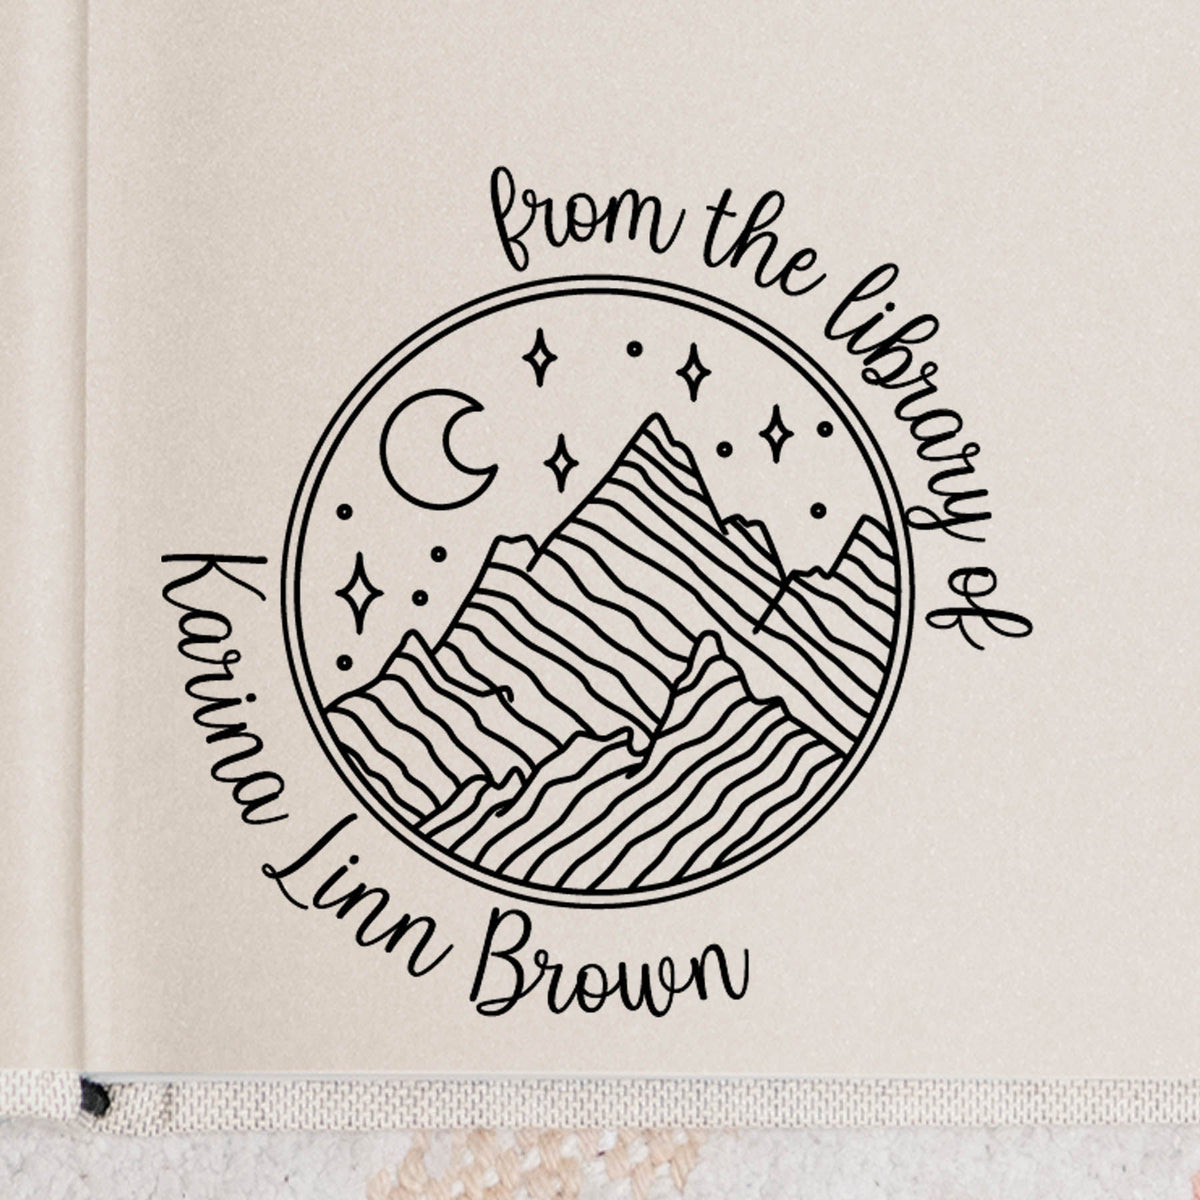 from the library of
Karina Linn Brown